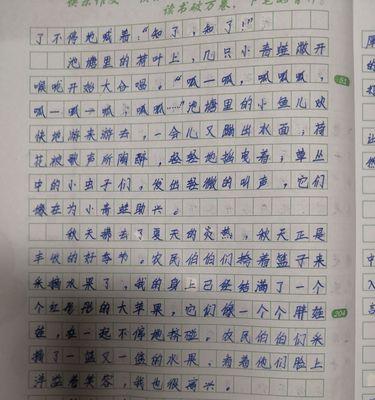 快乐作文
读书破万卷，下笔如有神
了不得地喊着："知了，知了！"
池塘里的荷叶上，几只小青蛙敞开
喉咙开始大合唱。"呱—呱，呱呱呱，
呱—呱—呱，呱呱……"池塘里的小鱼儿欢
快地游来游去，一会儿又蹦出水面；荷
花被歌声所陶醉，轻轻地摇曳着；草丛
中的小虫子们，发出轻微的叫声，它们
像在为小青蛙助兴。
秋天带去了夏天的炎热，秋天正是
丰收的好季节。农民伯伯们挎着篮子来
采摘水果了，我的身上已经结满了一个
个红彤彤的大苹果，它们像一个个胖娃
娃，在一起不停地挤碰。农民伯伯们采
摘了一篮又一篮的水果，看着他们脸上
洋溢着笑容，我也很高兴。
204